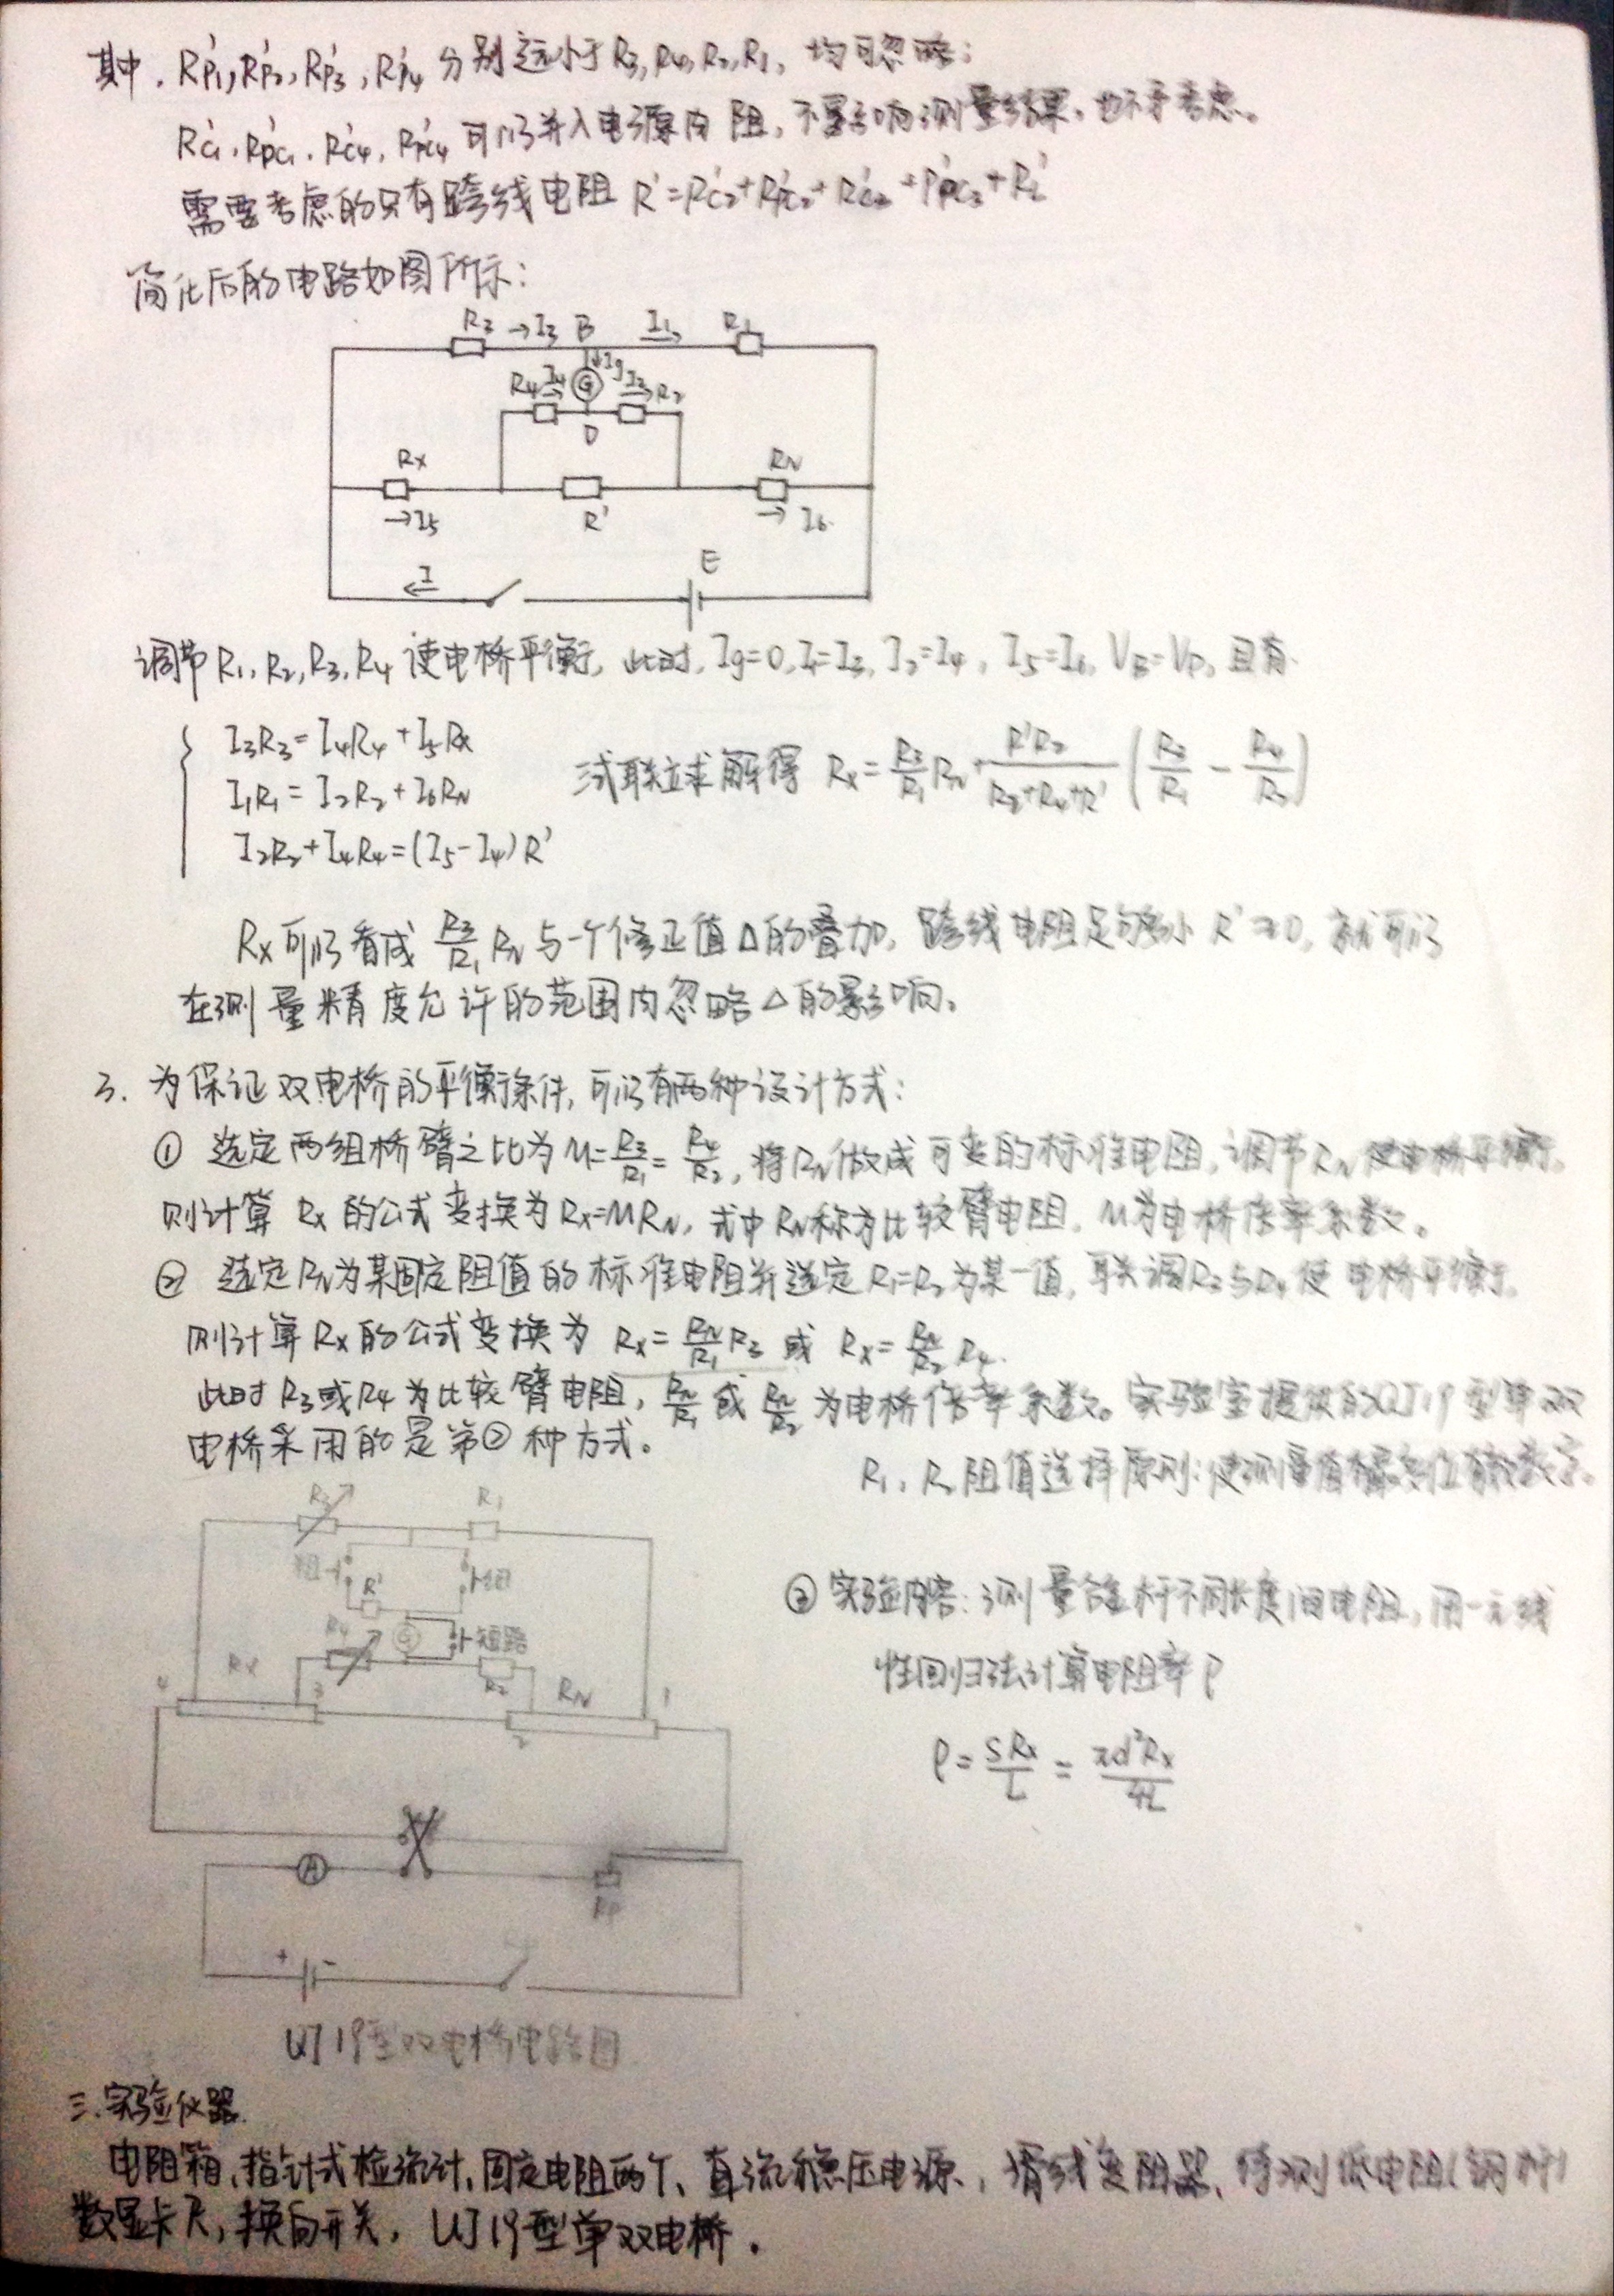 其中，R'p1, R'p2, R'p3, R'p4 分别远小于 R3, R4, R2, R1，均可忽略；
R'c1, R'pc1, R'c4, R'pc4 可以并入电源内阻，不影响测量结果，也不予考虑。
需要考虑的只有跨线电阻 R'=R'c2+R'pc2+R'c3+R'pc3+R'L
简化后的电路如图所示：
R3 →I3 B I1 R1
R4 I4 G Ig I2 R2
D
Rx RN
→I5 R' → I6
I E
调节 R1, R2, R3, R4 使电桥平衡，此时，Ig=0, I1=I3, I2=I4, I5=I6, VB=VD, 且有
I3R3=I4R4+I5Rx
I1R1=I2R2+I6RN
I2R2+I4R4=(I5-I4)R'
三式联立求解得 Rx = R3/R1 RN + R'R2/(R2+R4+R') (R3/R1 - R4/R2)
Rx 可以看成 R3/R1 RN 与一个修正值 Δ 的叠加，跨线电阻足够小 R'≈0，就可以
在测量精度允许的范围内忽略 Δ 的影响。
3. 为保证双电桥的平衡条件，可以有两种设计方式：
① 选定两组桥臂之比为 M=R3/R1=R4/R2，将 RN 做成可变的标准电阻，调节 RN 使电桥平衡，
则计算 Rx 的公式变换为 Rx=MRN，式中 RN 称为比较臂电阻，M为电桥倍率系数。
② 选定 RN 为某固定阻值的标准电阻并选定 R1=R2 为某一值，联调 R3 与 R4 使电桥平衡，
则计算 Rx 的公式变换为 Rx=RN/R1 R3 或 Rx=RN/R2 R4.
此时 R3 或 R4 为比较臂电阻，RN/R1 或 RN/R2 为电桥倍率系数。实验室提供的QJ19型单双
电桥采用的是第②种方式。
R1, R2 阻值选择原则：使测量值有最多位有效数字。
R3 R1
粗 细
R'
R4 G 短路
Rx R2 RN
4 3 2 1
③ 实验内容：测量金属杆不同长度间电阻，用一元线
性回归法计算电阻率 ρ
ρ = SRx/L = πd²Rx/4L
A
RP
+ -
QJ19型双电桥电路图
三. 实验仪器.
电阻箱、指针式检流计、固定电阻两个、直流稳压电源、滑线变阻器、待测低电阻(铜杆)
数显卡尺，换向开关，QJ19型单双电桥.